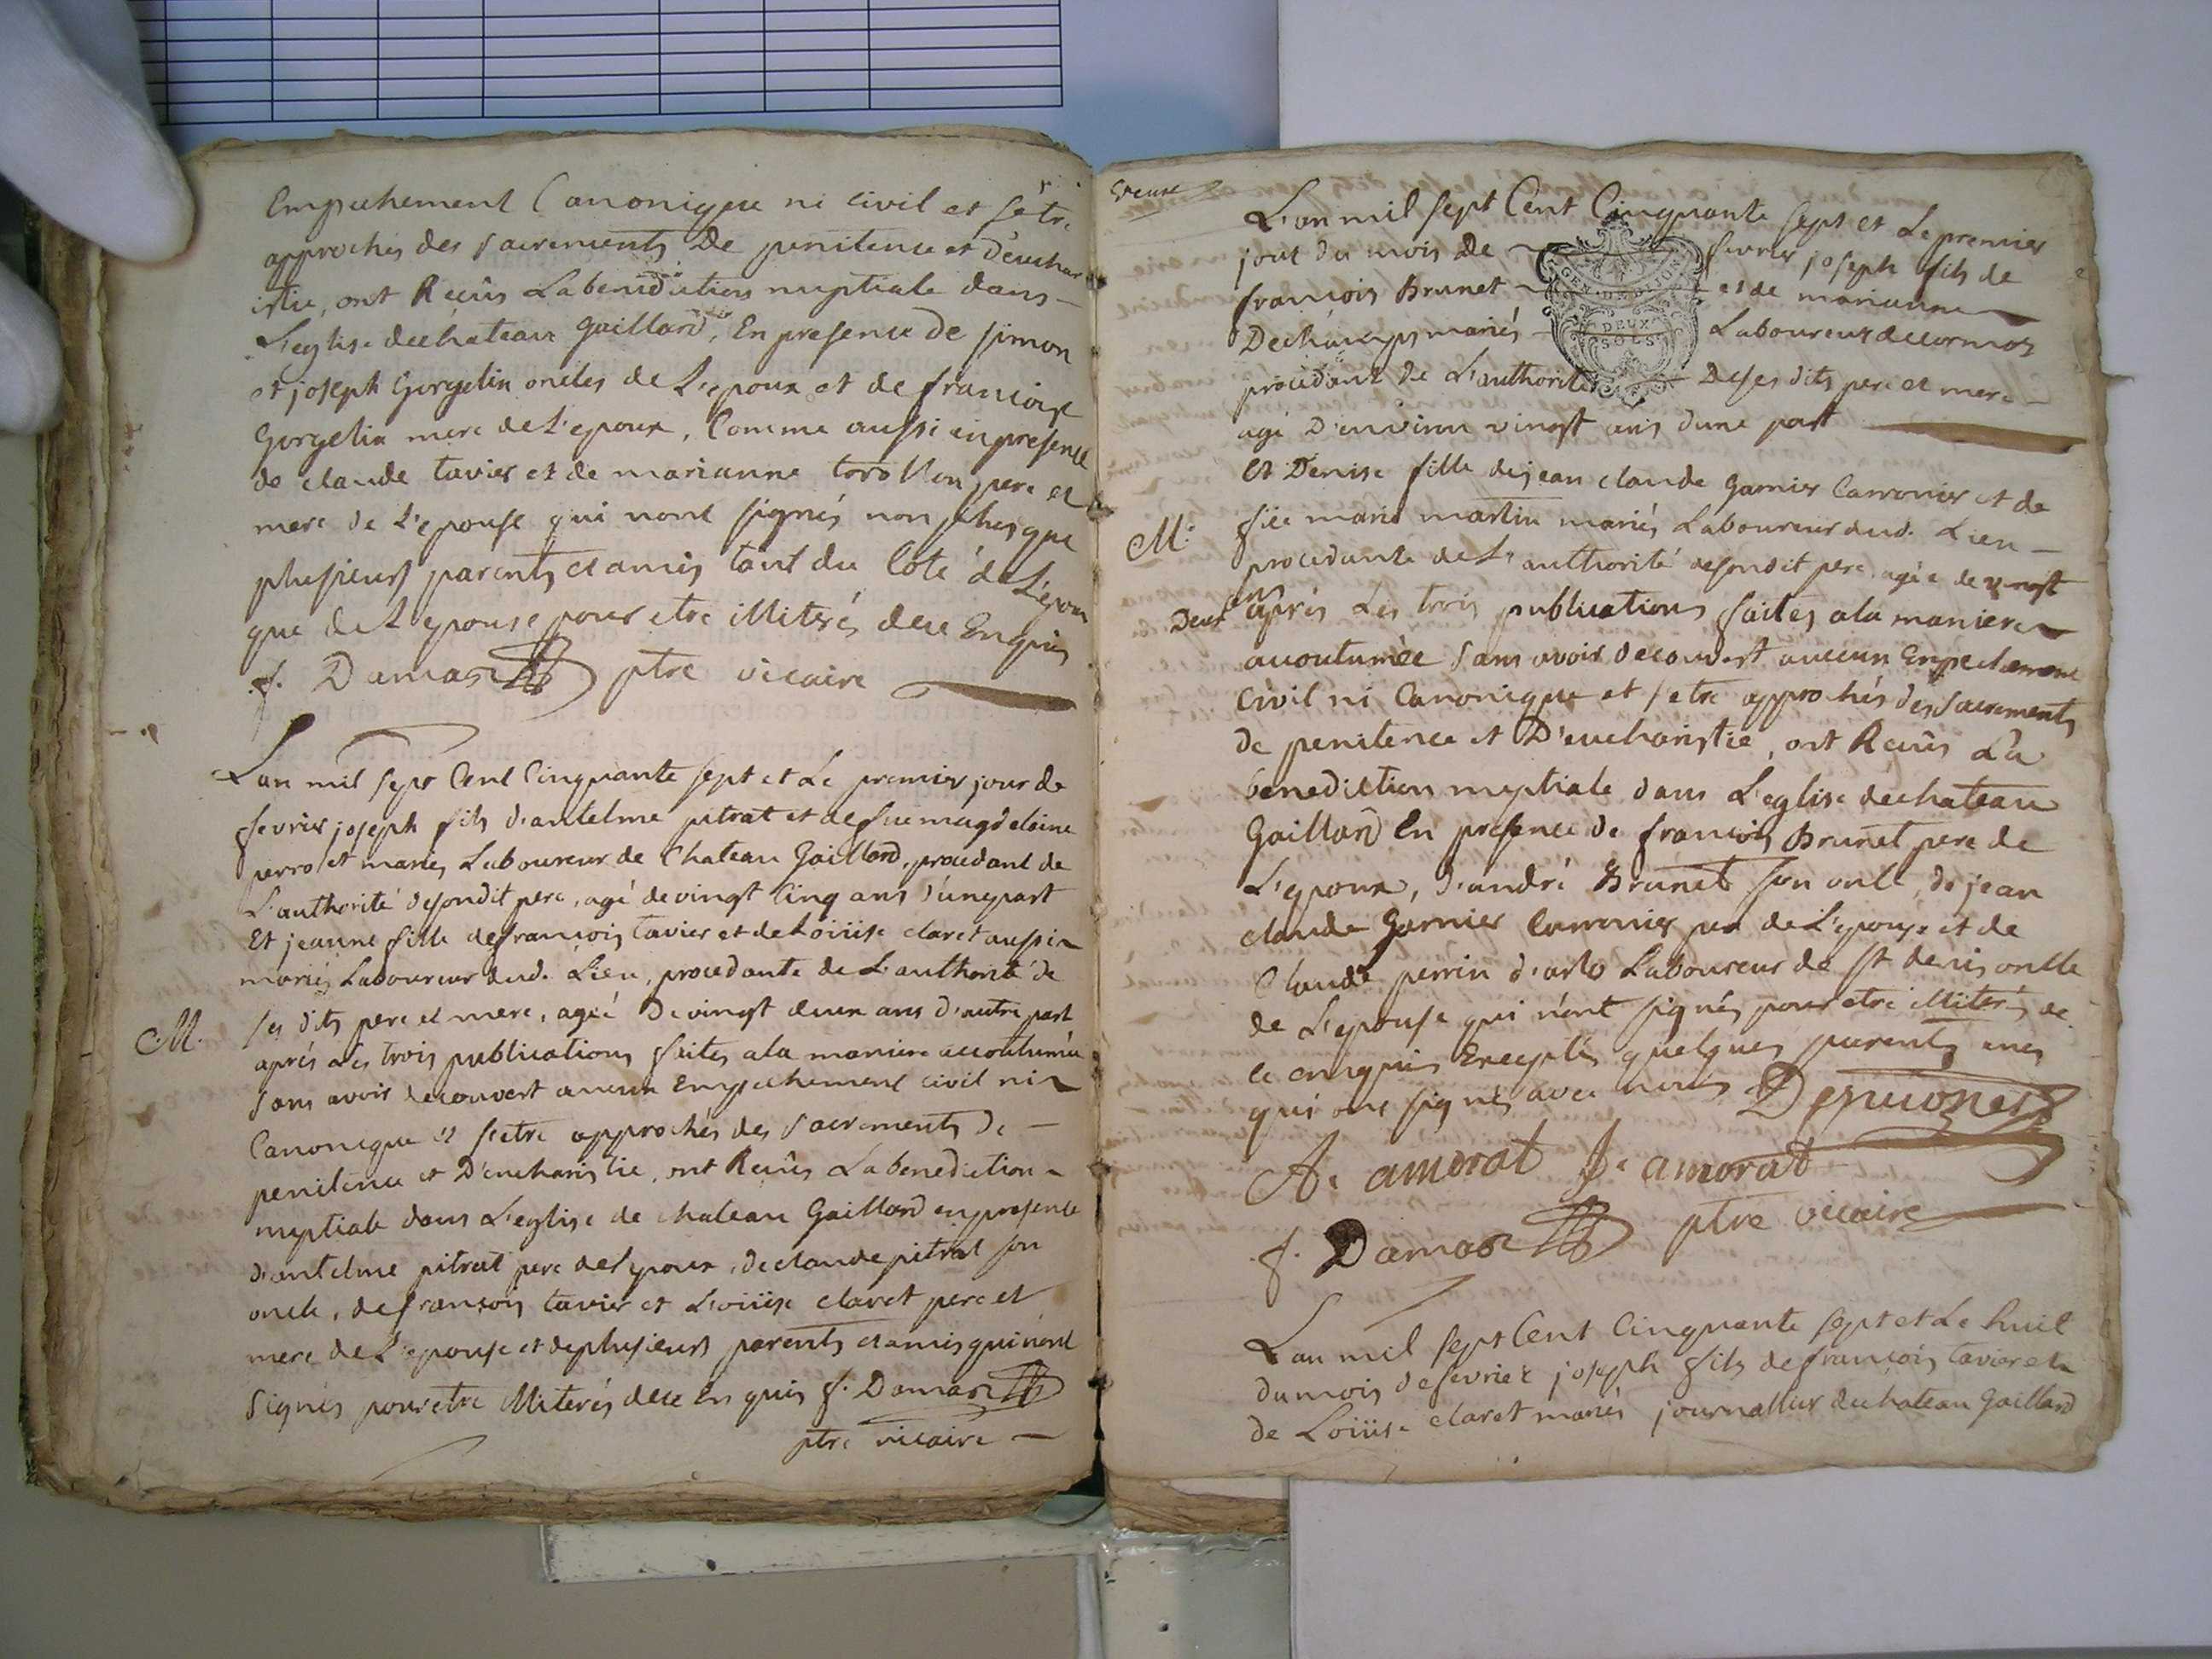 Empechement Canonique ni civil et s'etre
approchés des sacrements De penitence et d'euchar
istie, ont Reçûs La benediction nuptiale dans
L'eglise de château Gaillard, En presence de simon
et joseph Gorgelin oncles de L'epoux et de francoise
Gorgelin mere de L'epoux, Comme aussi en presence
de claude tavier et de marianne pere et
mere de L'epouse qui n'ont signés non plus que
plusieurs parents et amis tant du Coté de L'epoux
que de L'epouse pour etre illiterés de ce Enquis
f. Damas ptre vicaire
L'an mil sept Cent Cinquante sept et Le premier jour de
fevrier joseph fils d'antelme pitrat et de fue magdelaine
perroset mariés Laboureur de Chateau Gaillard, procedant de
L'authorité de son dit pere, agé de vingt Cinq ans d'une part
Et jeanne fille de francois tavier et de Loüise claret aussi
mariés Laboureur dud. Lieu, procedante de L'authorité de
M. ses dits pere et mere, agée De vingt deux ans d'autre part
aprés Les trois publications faites a la maniere accoutumée
sans avoir decouvert aucun Empechement civil ni
Canonique et s'etre approchés des sacrements de
penitence et D'eucharistie, ont Reçûs La benediction
nuptiale dans L'eglise de chateau Gaillard en presence
d'antelme pitrat pere de L'epoux, de claude pitrat son
oncle, de françois tavier et Loüise claret pere et
mere de L'epouse et de plusieurs parents et amis qui n'ont
signés pour etre illiterés de ce En quis f. Damas
ptre vicaire
L'an mil sept Cent Cinquante sept et Le premier
jour du mois de fevrier joseph fils de
françois Brunet et de marianne
Dechamps mariés Laboureur de cormoz
procedant de L'authorité De ses dits pere et mere
agé D'environ vingt ans d'une part
GEN·DE DIJON
DEUX
SOLS
Et Denise fille de jean claude Garnier Carronier et de
M. füe marie martin mariés Laboureur dud. Lieu
procedante de L'authorité de son dit pere, agée de vingt
Deux ans aprés Les trois publications faites a la maniere
accoutumée sans avoir decouvert aucun Enpechement
Civil ni Canonique et s'etre approchés des sacrements
de penitence et D'eucharistie, ont Reçûs La
benediction nuptiale dans L'eglise de chateau
Gaillard En presence de francois Brunet pere de
L'epoux, d'andré Brunet son oncle, de jean
claude Garnier Carronier pere de L'epouse et de
Claude perrin Laboureur de st denis oncle
de L'epouse qui n'ont signés pour etre illiterés de
ce enquis Exceptés quelques parents
qui ont signés avec nous
A. amorat J. amorat
f. Damas ptre vicaire
L'an mil sept Cent Cinquante sept et Le huit
du mois de fevrier joseph fils de françois tavier et
de Loüise claret mariés journallier de chateau Gaillard